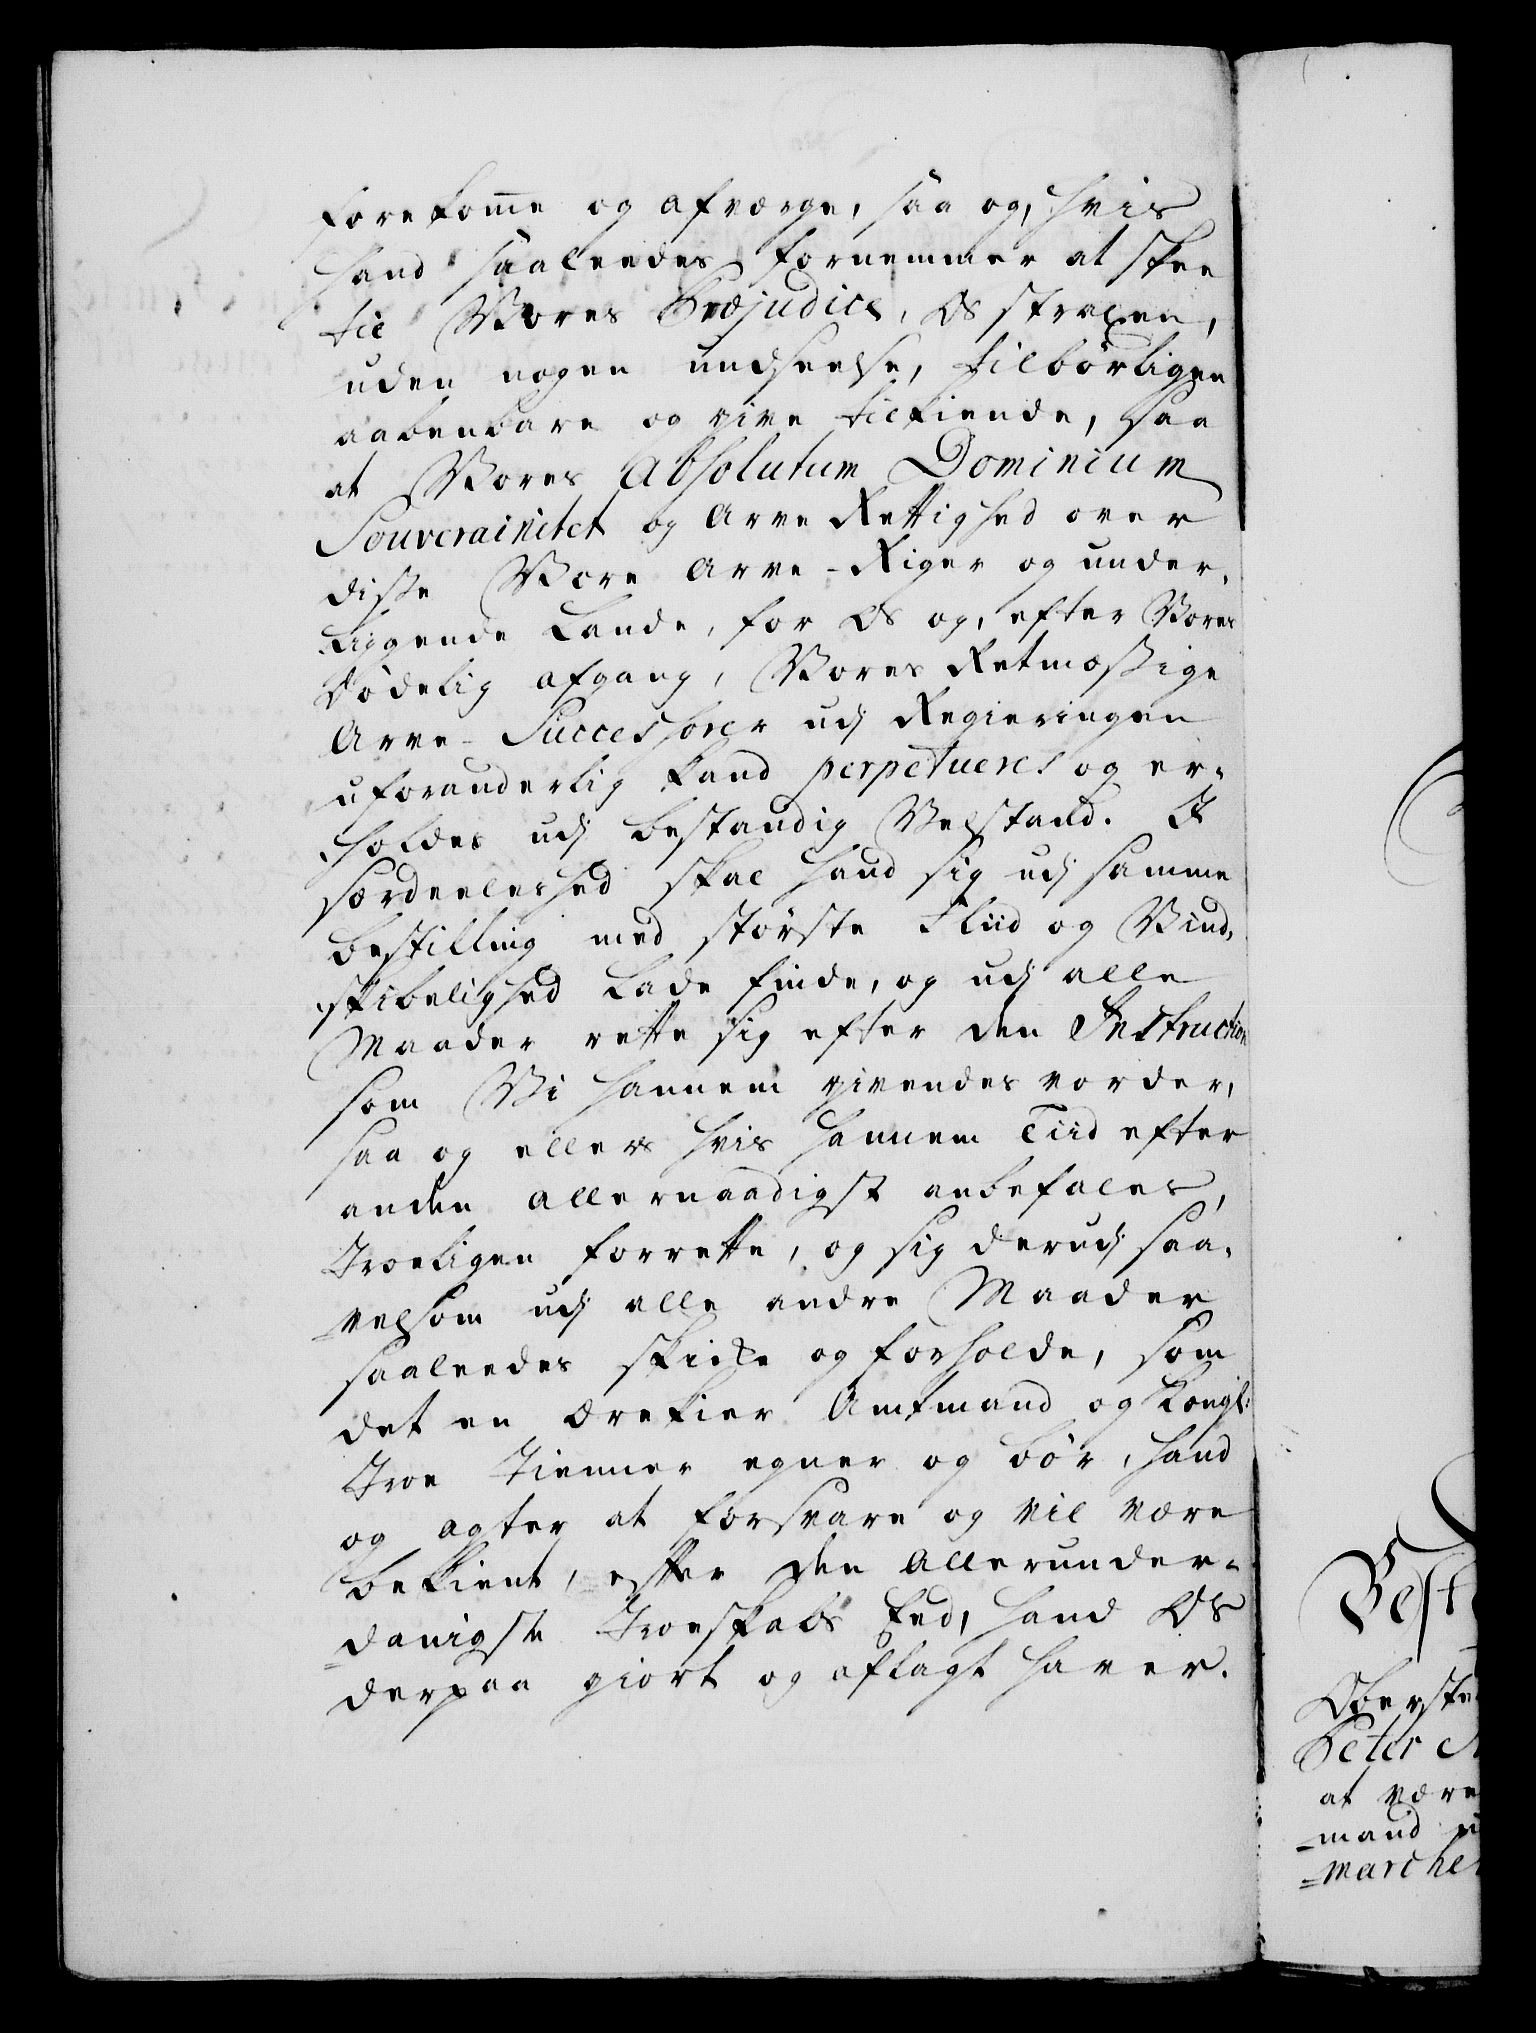 forekom̅e og afværge, saa og, hvis
hand saaleedes fornemmer at skee
til Vores Præjudice, Os straxen,
uden nogen undseelse, tilbørligen
aabenbare og give tilkiende, saa
at Vores Absolutum Dominium
Souverainitet og Arve Rettighed over
disse Vore Arve-Riger og under-
liggende Lande, for Os og, efter Vores
Dødelig afgang, Vores Retmæssige
Arve-Successorer udj Regieringen
uforanderlig kand perpetueres og er-
holdes udj bestandig Velstand. I
særdeeleshed skal hand sig udj samme
bestilling med største Fliid og Vind-
skibelighed lade finde, og udj alle
Maader rette sig efter den Instruction
som Vi hannem givendes vorder,
saa og ellers hvis hannem Tiid efter
anden allernaadigst anbefales,
troeligen forrette, og sig derudj saa-
velsom udj alle andre Maader
saaleedes skicke og forholde, som
det en ærekier Amtmand og Kongl:
troe Tienner egner og bør, hand
og agter at forsvare og vil være
bekient, efter den allerunder-
danigste Troeskabs Eed, hand Os
derpaa giort og aflagt haver.
Best
Oberste
Peter
at være
mand
marcher